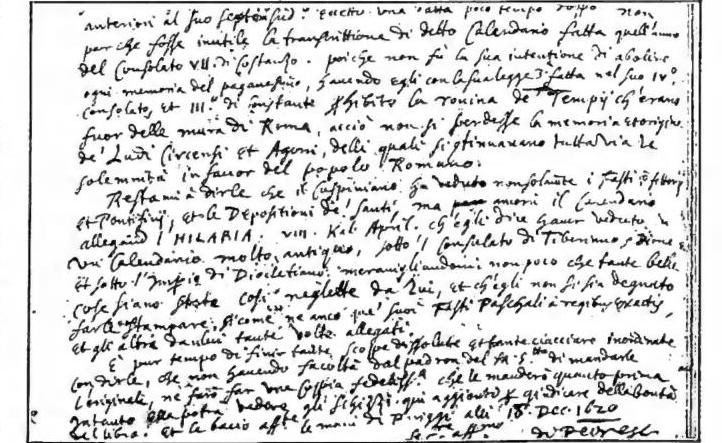 anteriori al suo
par che fosse inutile la transcrittione di detto Calendario fatta quell'anno
del Consolato VII. di Costanzo. poiche non fù la sua intentione di abolire
ogni memoria del paganesimo, havendo egli con la sua legge 3ª fatta nel suo IVº
Consolato, et IIIº di Constante prohibito la rovina de' Tempij ch'erano
fuor delle mura di Roma, acciò non si perdesse la memoria et origine
de' Ludi Circensi et Agoni, delli quali si continuavano tuttavia le
solennità in favor del popolo Romano.
Restami à dirle che il Cuspiniano ha veduto non solamente i Fasti
et Pontificij, et le Depositioni de' Santi, ma ancora il Calendario
allegand l'HILARIA. VIII. Kal. April. ch'egli dice haver veduto in
un Calendario molto antiquo, sotto l' consulato di
et sotto l'Imperio di Diocletiano: meravigliandomi non poco che tante belle
cose siano state così neglette da lui, et ch'egli non si sia degnato
farle stampare, si come ne anco que' suoi Fasti Paschali à regibus exactis,
et gli altri da lui tante volte allegati.
E pur tempo di finir tante, dissolute et tante ciacciare inordinate
con dirle, che non havendo facoltà dal padron del di mandarle
l'originale, ne farò far una coppia fedeliss.ª che le manderò quanto prima
Intanto ella potrà vedere gli schizzi qui aggionti per giudicare della bontà
del libro. Et le bacio aff.te le mani di Pariggi alli 18 Dec. 1620
aff.mo
di Peiresc